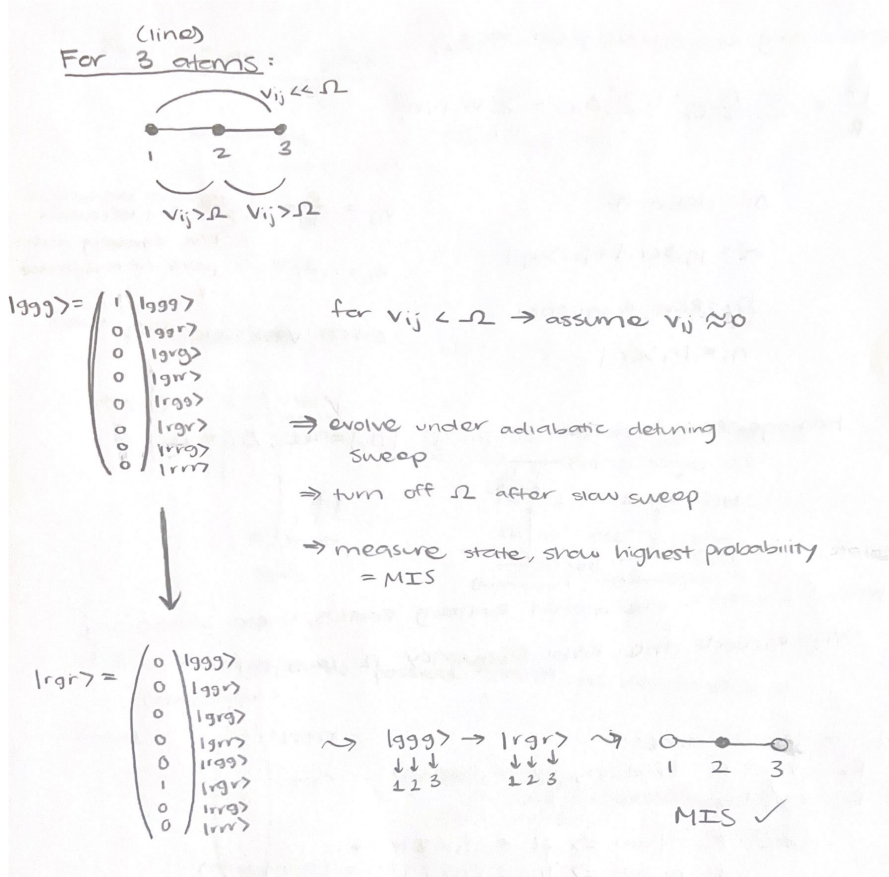 (line)
For 3 atoms:
Vij << Ω
1 2 3
Vij>Ω Vij>Ω
|ggg> = 1 |ggg>
0 |ggr>
0 |grg>
0 |grr>
0 |rgg>
0 |rgr>
0 |rrg>
0 |rrr>
for Vij < Ω → assume Vij ≈ 0
⇒ evolve under adiabatic detuning
sweep
⇒ turn off Ω after slow sweep
→ measure state, show highest probability
= MIS
|rgr> = 0 |ggg>
0 |ggr>
0 |grg>
0 |grr>
0 |rgg>
1 |rgr>
0 |rrg>
0 |rrr>
⇝ |ggg> → |rgr> ⇝
↓↓↓ ↓↓↓
1 2 3 1 2 3
1 2 3
MIS ✓